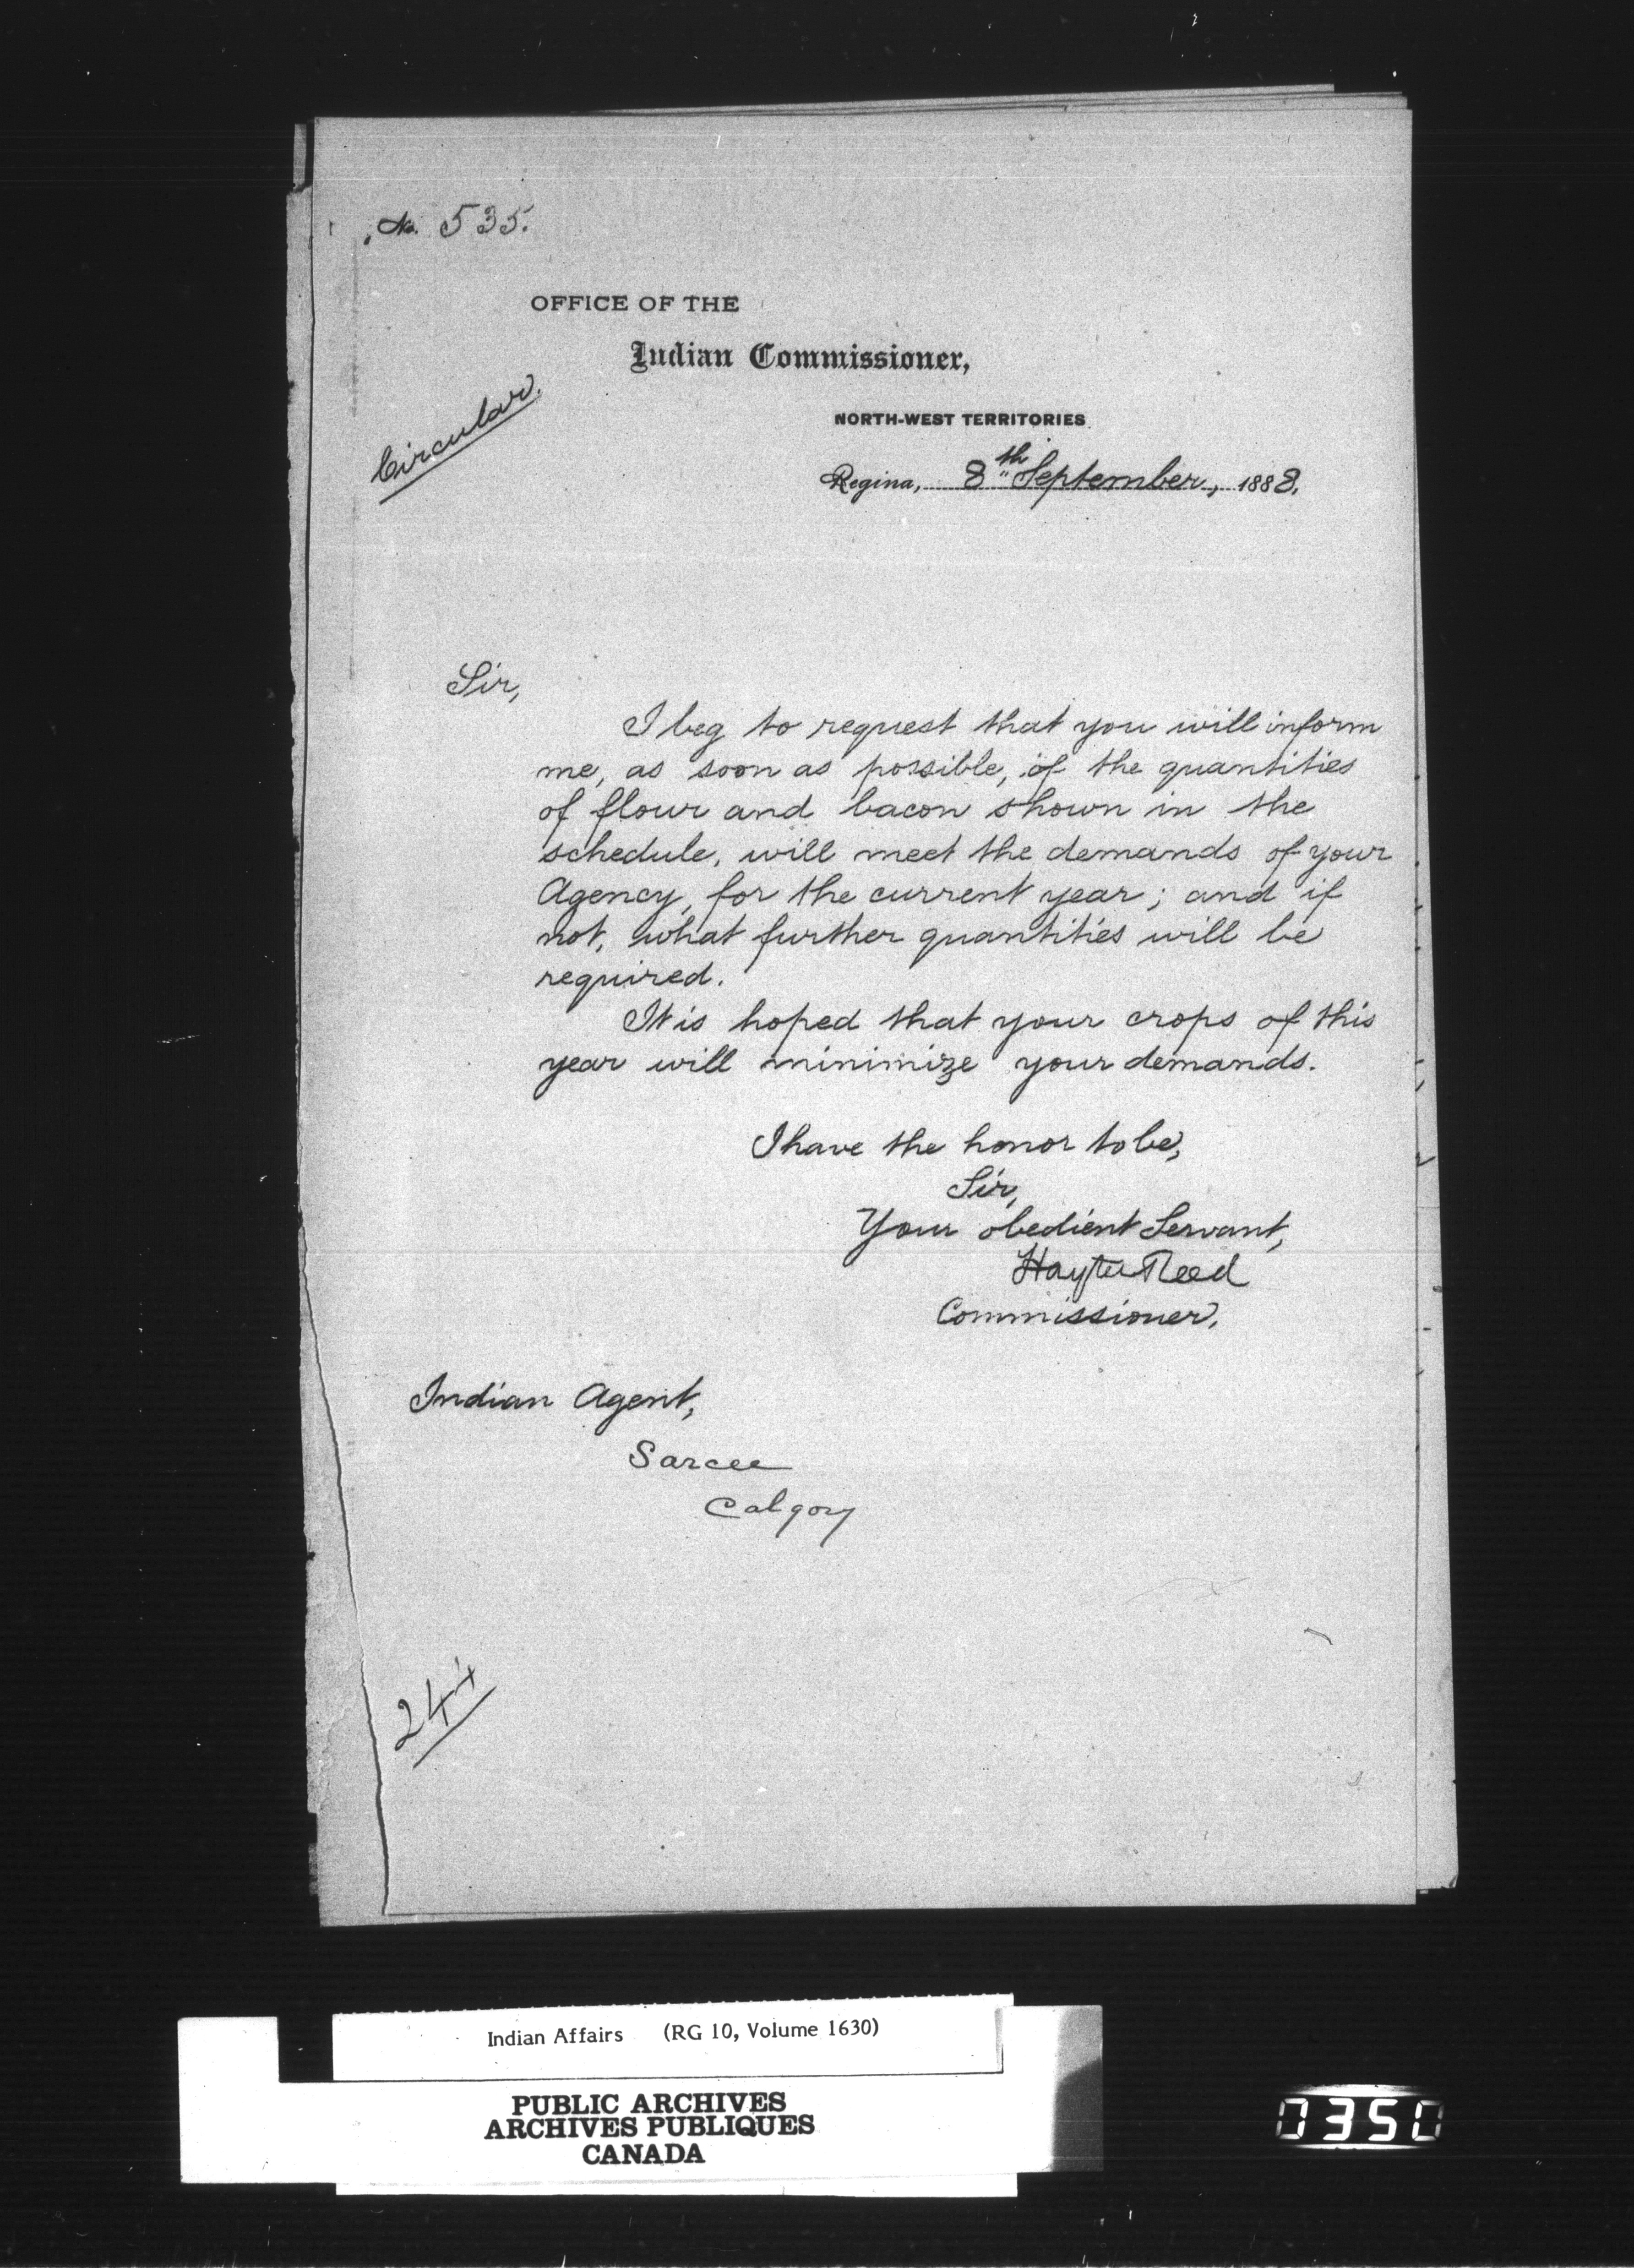 No. 535.
OFFICE OF THE
Indian Commissioner,
Circular.
NORTH-WEST TERRITORIES
Regina, 8th September, 1888.
Sir,
I beg to request that you will inform
me, as soon as possible, if the quantities
of flour and bacon shown in the
schedule, will meet the demands of your
Agency, for the current year; and if
not, what further quantities will be
required.
It is hoped that your crops of this
year will minimize your demands.
I have the honor to be,
Sir,
Your obedient Servant,
Hayter Reed
Commissioner.
Indian Agent,
Sarcee
Calgary
244
Indian Affairs (RG 10, Volume 1630)
PUBLIC ARCHIVES
ARCHIVES PUBLIQUES
CANADA
0350